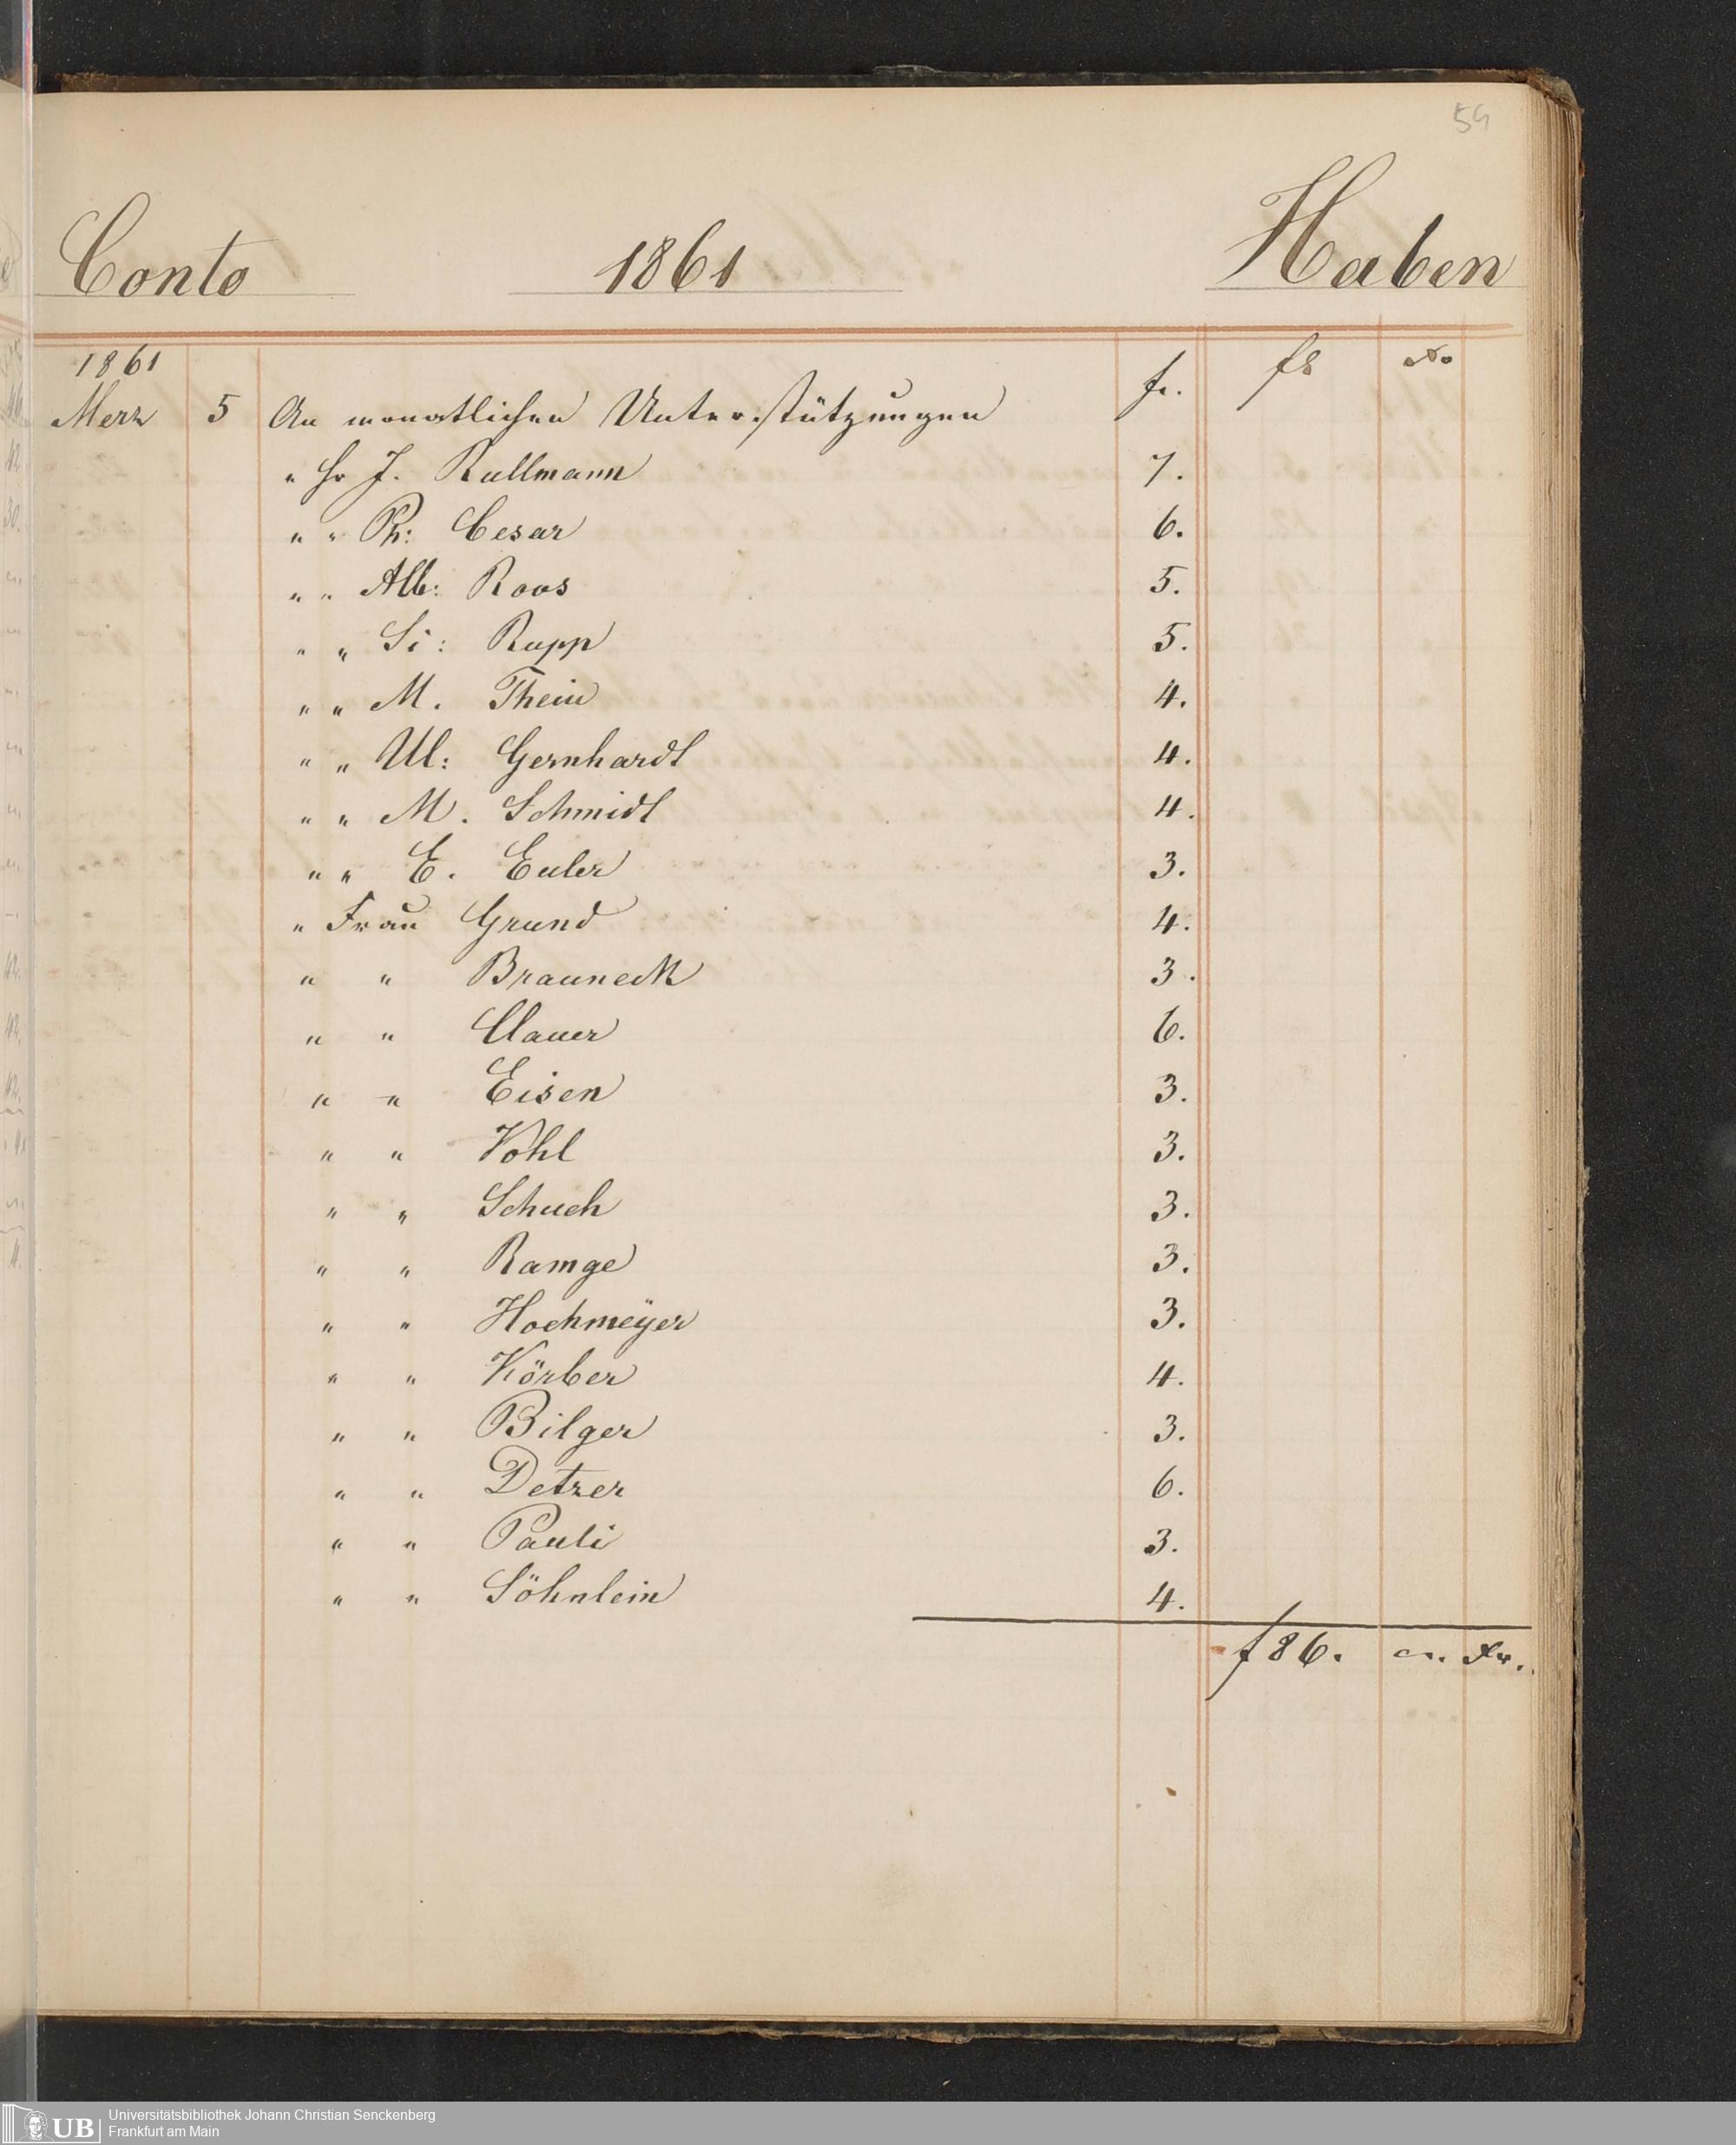 59
Conto 1861 Haben
1861 fr. fl xr
Merz 5 An monatlichen Unterstützungen
" Hr J. Rullmann 7.
" " Ph: Cesar 6.
" " Alb: Roos 5.
" " Si: Rupp 5.
" " M. Thein 4.
" " Ul: Gernhardt 4.
" " M. Schmidt 4.
" " E. Euler 3.
" Frau Grund 4.
" " Brauneck 3.
" " Clauer 6.
" " Eisen 3.
" " Vohl 3.
" " Schuch 3.
" " Ramge 3.
" " Hochmeÿer 3.
" " Körber 4.
" " Bilger 3.
" " Detzer 6.
" " Pauli 3.
" " Söhnlein 4.
f 86. Xr.
UB Universitätsbibliothek Johann Christian Senckenberg
Frankfurt am Main